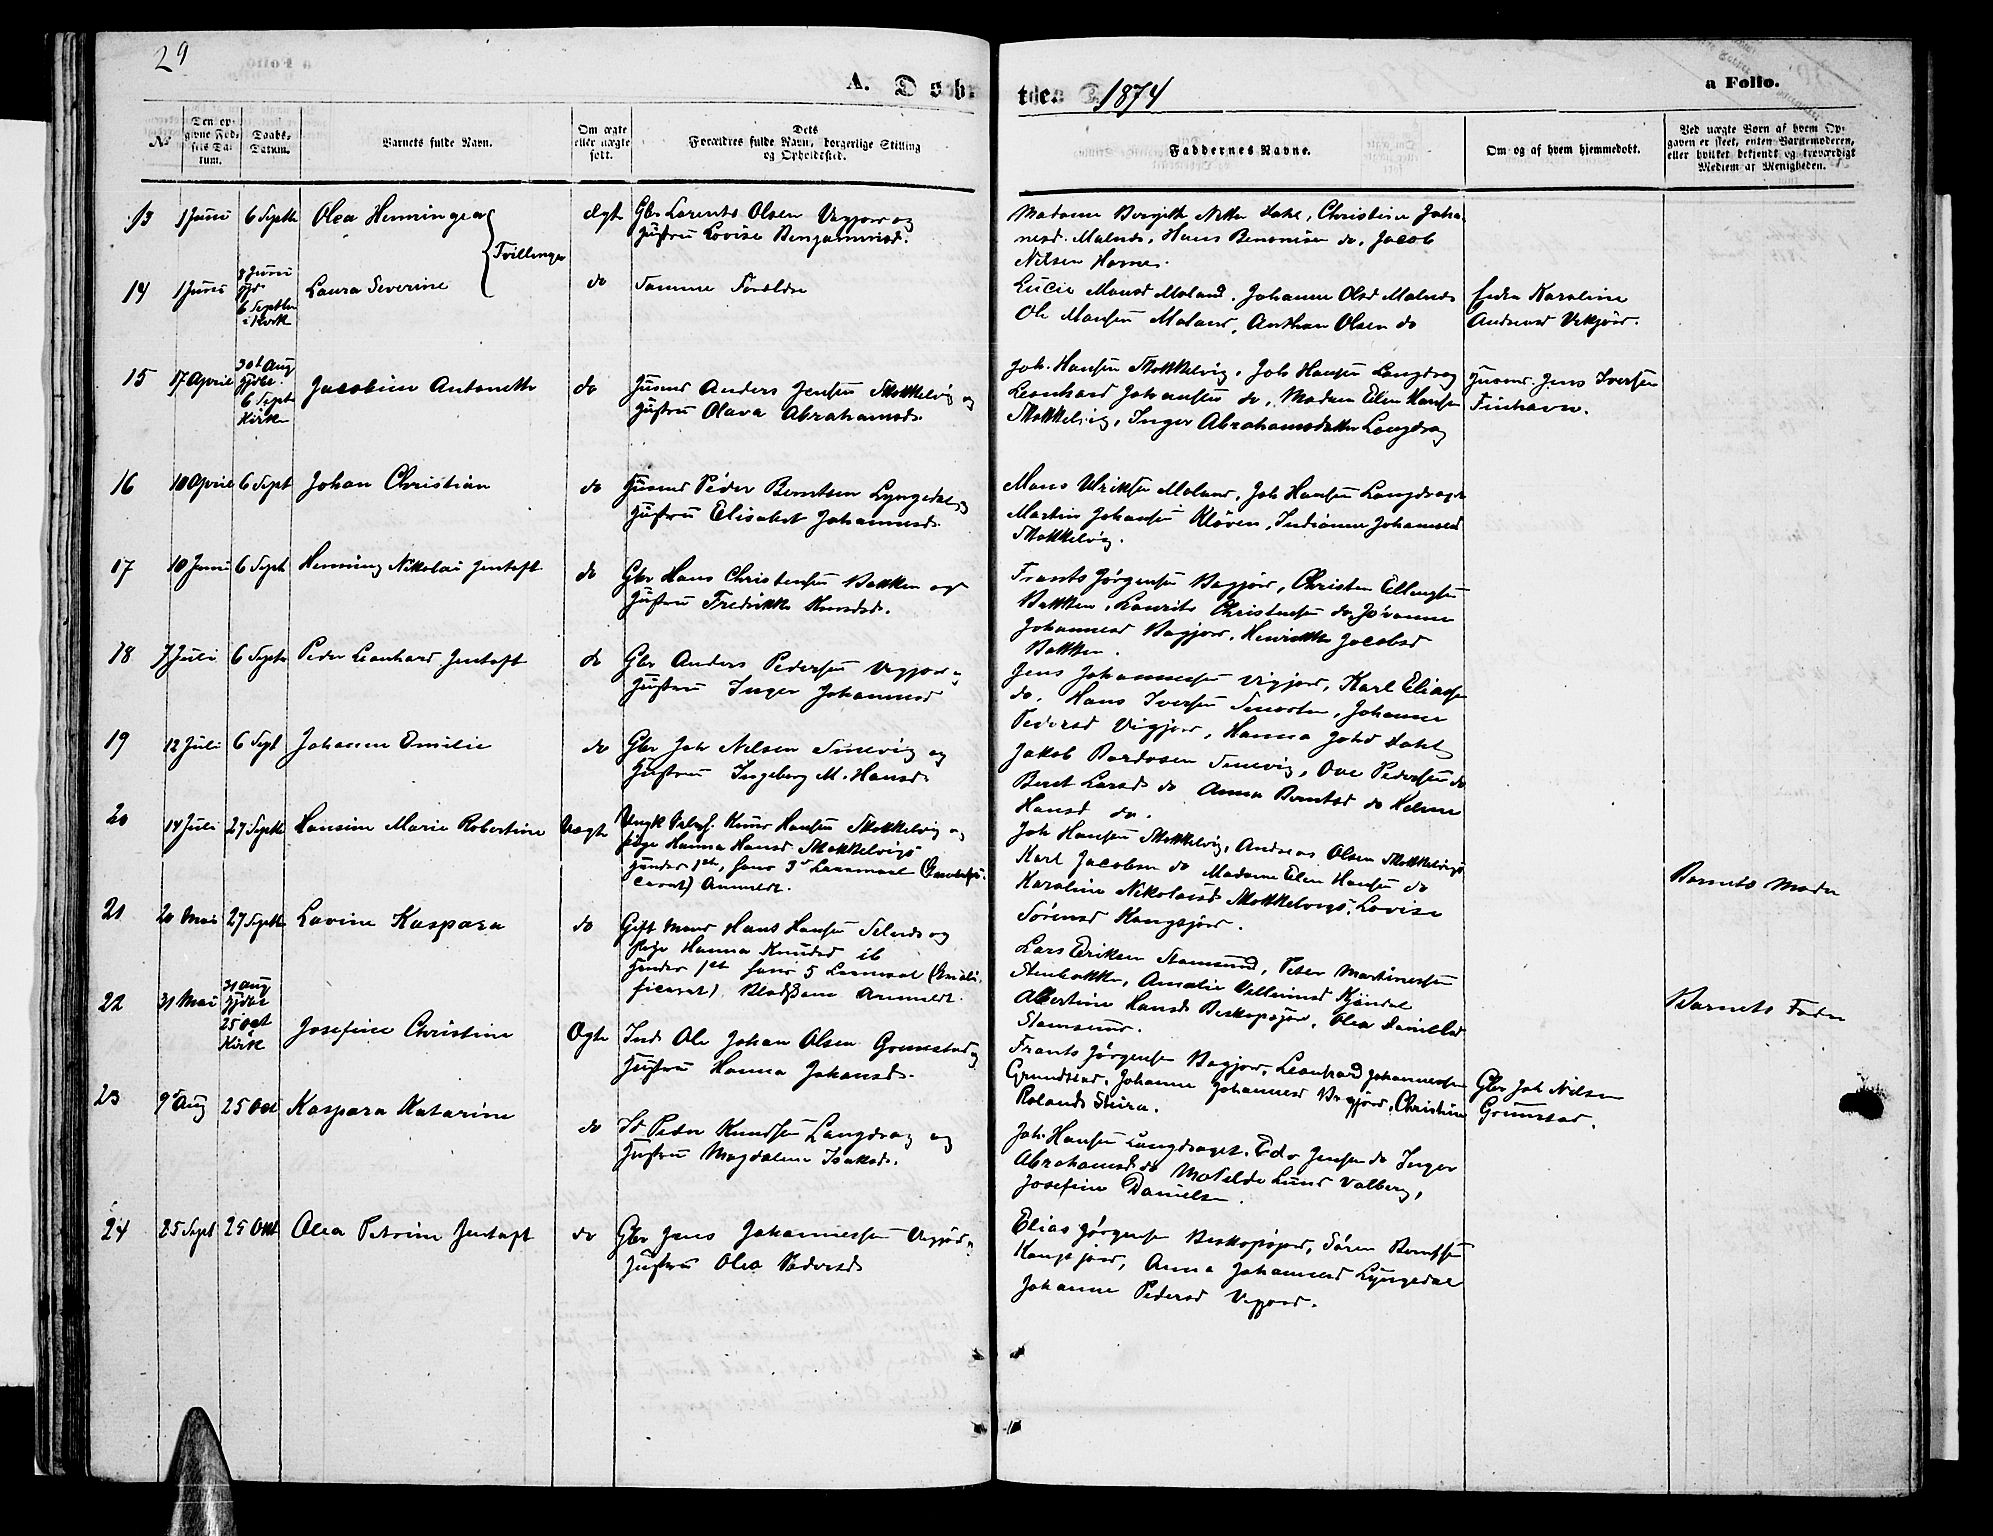 29
A. D
1874
a Folio.
№
Den op-
givne Fød-
sels Da-
tum.
Daabs-
Datum.
Barnets fulde Navn.
Om ægte
eller uægte
født.
Dets
Forældres fulde Navn, borgerlige Stilling
og Opholdsted.
Faddernes Navne.
Om og af hvem hjemmedøbt.
Ved uægte Børn af hvem Op-
gaven er skeet, enten Barnemoderen,
eller hvilket bekjendt og troværdigt
Medlem af Menigheden.
13 1 Juni 6 Septb Olea Henningea Tvillinger Ægte Gbr Lorents Olsen Vegjor og
Hustru Lovise Benjaminsd.
Madame Bergitte Dahl, Christine Joha-
nesd. Malnes, Hans Benonisen do, Jacob
Nilsen Hornes.
14 1 Juni 8 Juni
6 Septbr
i Kirk
Laura Severine do Samme Foreldre
Lucie Monsd Moland, Johanne Olsd Malnes
Ole Monsen Moland, Anthon Olsen do
Enka Karoline
Andreasd Vikjord.
15 17 April 30t Aug
Hjdbt.
6 Sept
Kirken
Jacobine Antonette do Husmd Anders Jensen Stokkelvig og
Hustru Olava Abrahamsd.
Joh. Hansen Stokkelvig, Joh Hansen Langdrag
Leonhard Johansen do, Madam Elen Hansen
Stokkelvig, Inger Abrahamsdatter Langdrag
Husmd. Jens Iversen
Finhavn.
16 10 April 6 Sept Johan Christian do Husmd Peder Berntsen Lyngedal og
Hustru Elisabet Johannesd.
Mons Ulriksen Moland, Joh Hansen Langdraget
Martin Johansen Kløven, Indianne Johannesd
Stokkelvig.
17 10 Juni 6 Sept Henning Nikolai Jentoft do Gbr Hans Christensen Bakken og
Hustru Fredrikke Knudsd.
Frants Jørgensen Bagjor, Christen Ellingsen
Bakken, Laurits Christensen do, Johanne
Johannesd Bagjor, Henrikke Jacobsd
Bakken.
18 7 Juli 6 Septb Peder Leonhard Jentoft do Gbr Anders Pedersen Vegjor og
Hustru Inger Johannesd
Jens Johannessen Vigjord, Karl Eliassen
do, Hans Iversen Smorten, Johanne
Pedersd Vigjor, Hanna Johd Dahl
19 12 Juli 6 Sept Johanne Emilie do Gbr Joh Nilsen Smevig og
Hustru Ingeborg M. Hansd.
Jakob Bardosen Smevig, Ove Pedersen do
Beret Larsd do Anna Berntsd do
Hansd do.
20 14 Juli 27 Septb Hansine Marie Robertine Uægte Ungk Knud Hansen Stokkelvig og
Pige Hanna Hansd Stokkelvigs
Hendes 1ste, hans 3d Leiermaal
Anmeldt.
Joh Hansen Stokkelvig, Andreas Olsen Stokkelvigs
Karl Jacobsen do Madame Elen Hansen do
Karoline Nikolaisd Stokkelvigs, Lovise
Sørensd Kongsjord.
Barnets Moder
21 20 Mai 27 Septb Lavine Kaspara do Gift Mand Hans Hansen Selnes og
Pige Hanna Knudsd ib
Hendes 1ste hans 5 Leiermaal
Anmeldt.
Lars Eriksen Stamsund, Peter Martinessen
Stenbakke, Amalie Villumsd
Albertine Hansd Biskopsjor, Olea Danielsd
Stamsund.
Barnets Fader
22 31 Mai 31 Aug
Hjdbt
25 Oct
Kirk
Josefine Christine Ægte Inds Ole Johan Olsen Grunstad og
Hustru Hanna Johansd.
Frants Jørgensen Bagjor, Leonhard Johannessen
Grundstad, Johanne Johannesd Vegjord, Christine
Rolands Steira.
Gbr Joh Nilsen
Grunstad.
23 9d Aug 25 Oct Kaspara Katarine do Peder Knudsen Langdrag og
Hustru Magdalene Isaksd.
Joh Hansen Langdraget, Jensen do Inger
Abrahamsd do Matilde Lund Valberg,
Josefine Danielsen.
24 25 Sept 25 Okt Olea Petrine Jentoft do Gbr Jens Johannessen Vigjord og
Hustru Olea Pedersd
Elias Jørgensen Biskopsjor, Søren Berntsen
Kongsjord, Anna Johannesd Lyngedal
Johanne Pedersd Vegjord.